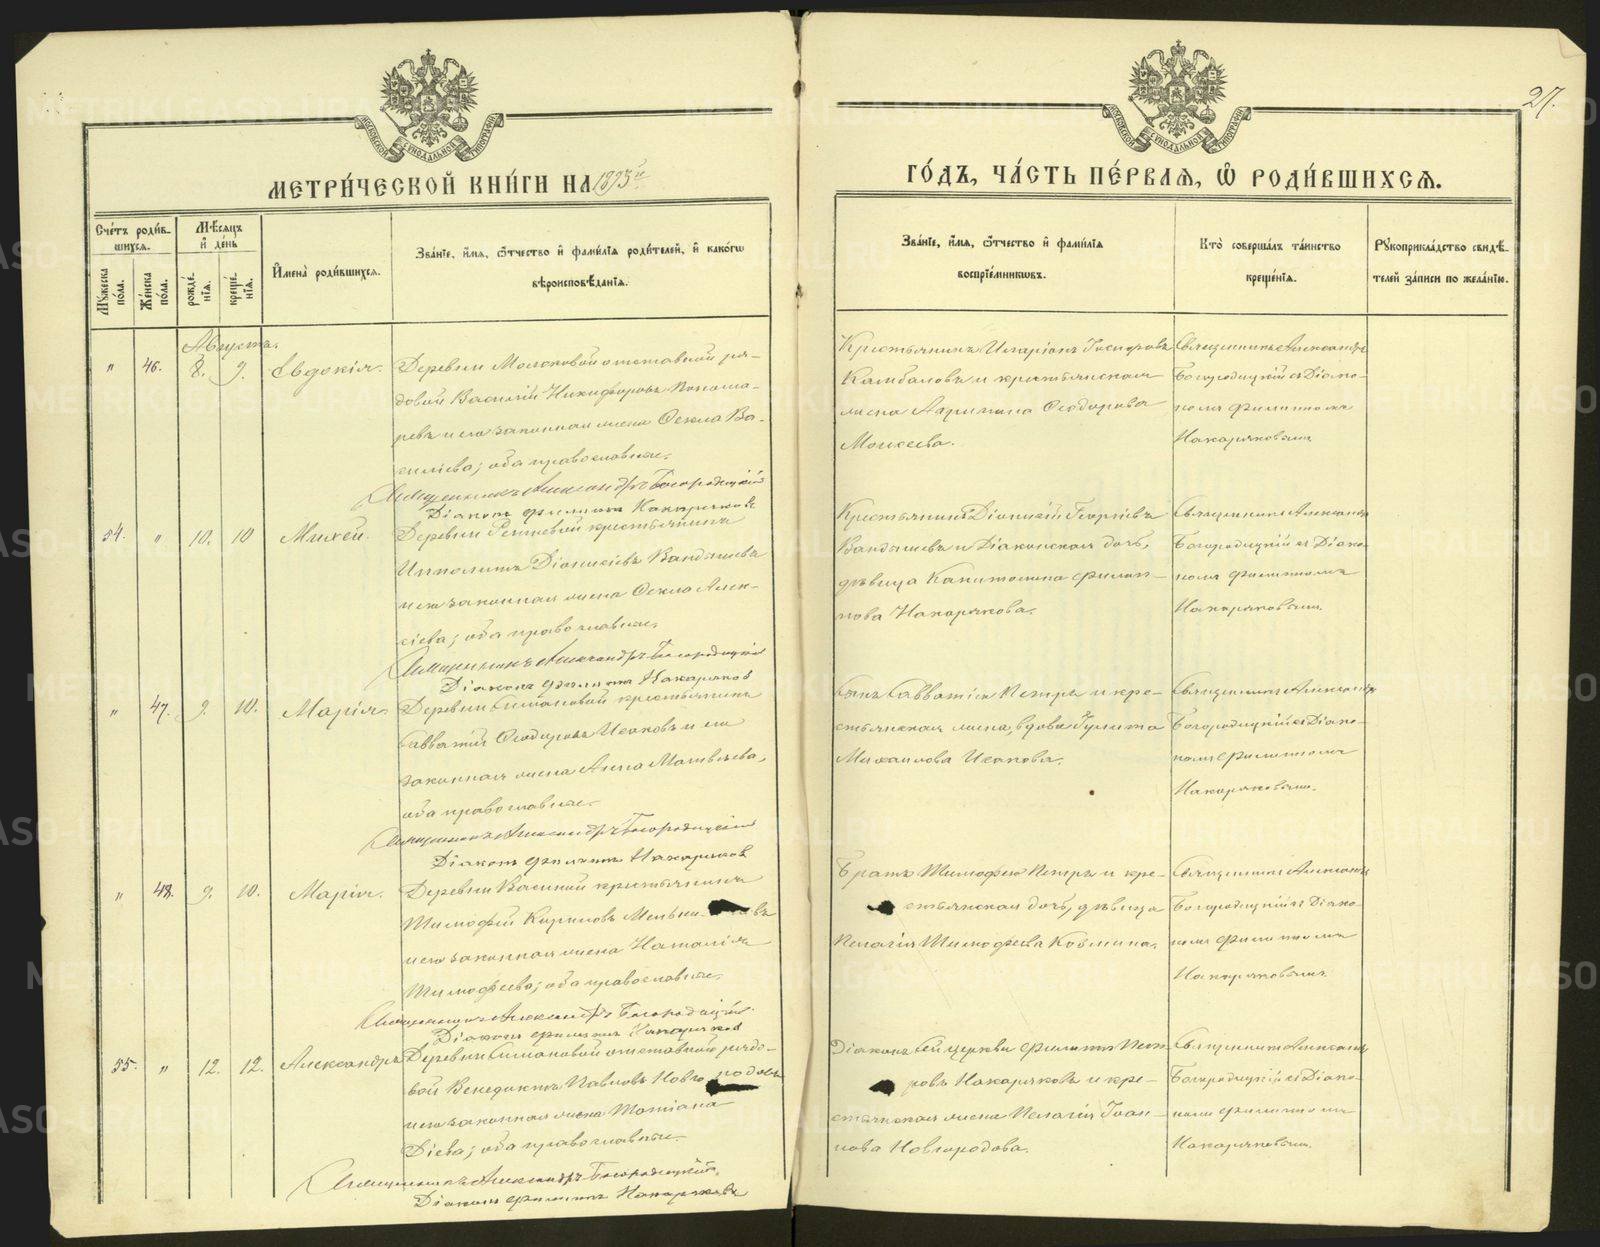 27.
МЕТРИ́ЧЕСКОЙ КНИ́ГИ НА 1895й
ГО́ДЪ, ЧА́СТЬ ПЕ́РВАЯ, Ѽ РОДИ́ВШИХСЯ.
Сче́тъ роди́в-
шихся.
Му́жеска по́ла.
Же́нска по́ла.
Мѣ́сяцъ и҆ де́нь
рожде́-
нїя.
креще́-
нїя.
И҆мена̀ роди́вшихся.
Зва́нїе, и҆́мя, ѻ҆́тчество и҆ фами́лїя роди́телей, и҆ како́гѡ
вѣроисповѣ́данїя.
Зва́нїе, и҆́мя, ѻ҆́тчество и҆ фами́лїя
воспрїе́мникѡвъ.
Кто̀ соверша́лъ та́инство
креще́нїя.
Рꙋкоприкла́дство свидѣ́-
телей за́писи по жела́нїю.
Августа.
" 46. 8. 9. Евдокія.
Деревни Мосяковой отставной ря-
довой Василій Никифоровъ Понома-
ревъ и его законная жена Ѳекла Ва-
силіева; оба православные.
Священникъ Александръ Богородицкій
Діаконъ Филиппъ Накаряковъ
Крестьянинъ Иларіонъ
Камбаловъ и крестьянская
жена Агрипина Ѳеодорова
Моисеева.
Священникъ Александръ
Богородицкій съ Діако-
номъ Филиппомъ
Накаряковымъ
54. " 10. 10 Михей.
Деревни крестьянинъ
Ипполитъ Діонисіевъ Вандышевъ
и его законная жена Ѳекла Алек-
сіева; оба православные.
Священникъ Александръ Богородицкій
Діаконъ Филиппъ Накаряковъ
Крестьянинъ Діонисій Георгіевъ
Вандышевъ и Діаконская дочь,
дѣвица Капитолина Филип-
пова Накарякова.
Священникъ Александръ
Богородицкій съ Діако-
номъ Филиппомъ
Накаряковымъ
" 47. 9. 10. Марія.
Деревни Симановой крестьянинъ
Савватій Ѳеодоровъ Исаковъ и его
законная жена Анна Матвѣева,
оба православные.
Священникъ Александръ Богородицкій
Діаконъ Филиппъ Накаряковъ
Сынъ Савватія Петръ и кре-
стьянская жена, вдова Гулита
Михаилова Исакова.
Священникъ Александръ
Богородицкій съ Діако-
номъ Филиппомъ
Накаряковымъ.
" 48. 9. 10. Марія.
Деревни крестьянинъ
Тимофей Кириловъ
и его законная жена Наталія
Тимофеева; оба православные.
Священникъ Александръ Богородицкій
Діаконъ Филиппъ Накаряковъ
Братъ Тимофею Петръ и кре-
стьянская дочь, дѣвица
Пелагія Тимофеева Козмина.
Священникъ Александръ
Богородицкій съ Діако-
номъ Филиппомъ
Накаряковымъ
55. " 12. 12. Александръ
Деревни Симановой отставной рядо-
вой Венедиктъ Павловъ Новгородовъ
и его законная жена Татіана
оба православные.
Священникъ Александръ Богородицкій.
Діаконъ Филиппъ Накаряковъ
Діаконъ сей церкви Филиппъ Пет-
ровъ Накаряковъ и кре-
стьянская жена Пелагія Іоан-
нова Новгородова.
Священникъ Александръ
Богородицкій съ Діако-
номъ Филиппомъ
Накаряковымъ.
METRIKI.GASO-URAL.RU